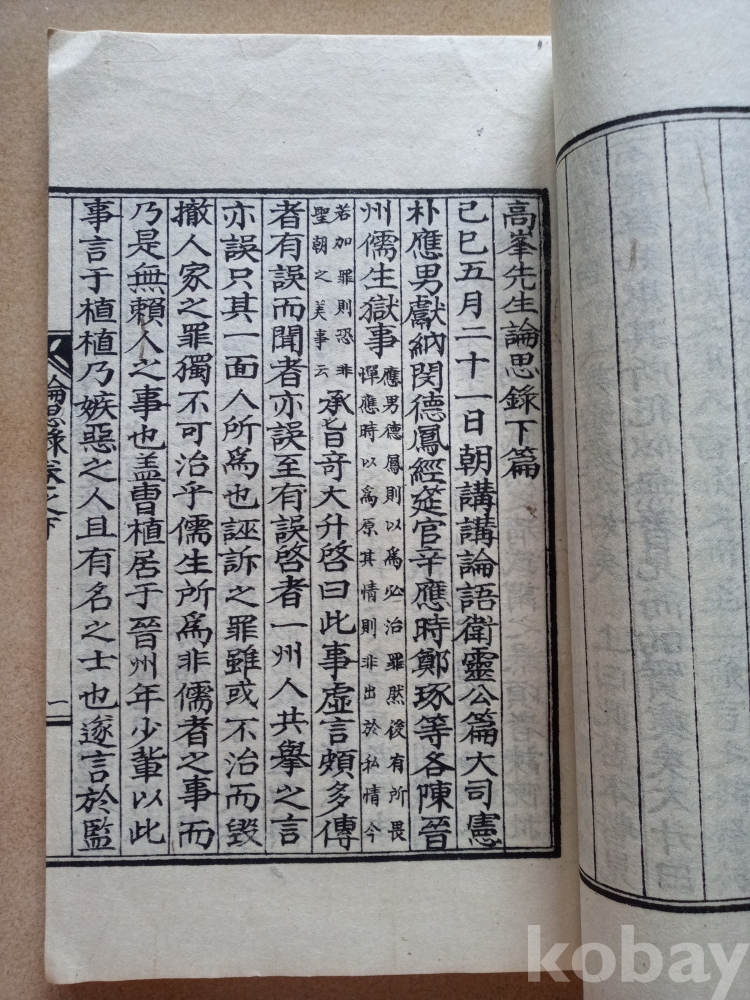 高峯先生論思錄下篇
己巳五月二十一日朝講講論語衛靈公篇大司憲
朴應男獻納閔德鳳經筵官辛應時鄭琢等各陳晉
州儒生獄事應男德鳳則以爲必治罪然後有所畏
憚應時以爲原其情則非出於私情今
若加罪則恐非
聖朝之美事云承旨奇大升啓曰此事虛言頗多傳
者有誤而聞者亦誤至有誤啓者一州人共擧之言
亦誤只其一面人所爲也誣訴之罪雖或不治而毀
撤人家之罪獨不可治乎儒生所爲非儒者之事而
乃是無賴人之事也盖曺植居于晉州年少輩以此
事言于植植乃嫉惡之人且有名之士也遂言於監
論思錄卷之下
一
kobay